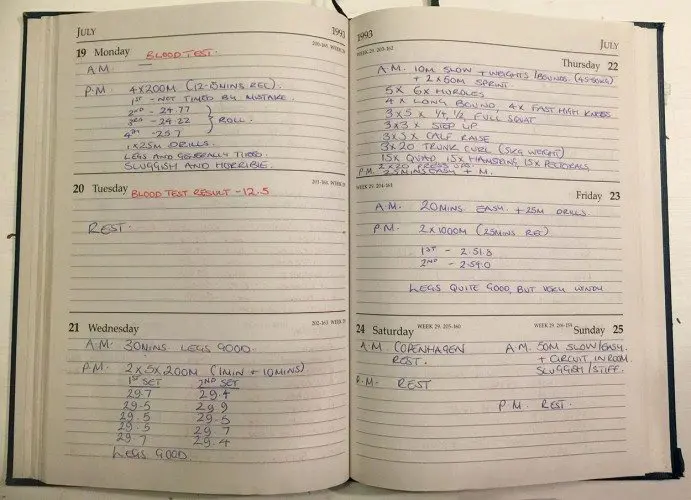 JULY 1993
19 Monday 200-165 WEEK 29
BLOOD TEST.
A.M.
P.M. 4 X 200M (12-15MINS REC)
1ST - NOT TIMED BY MISTAKE.
2ND - 24.77
3RD - 24.22 } ROLL.
4TH - 25.7
1 X 25M DRILLS.
LEGS AND GENERALLY TIRED.
SLUGGISH AND HORRIBLE.
20 Tuesday 201-164 WEEK 29
BLOOD TEST RESULT - 12.5
REST.
21 Wednesday 202-163 WEEK 29
A.M. 30MINS LEGS GOOD.
P.M. 2 X 5 X 200M (1MIN + 10MINS)
1ST SET 2ND SET
29.7 29.4
29.5 29.9
29.5 29.5
29.5 29.7
29.7 29.4
LEGS GOOD
1993 JULY
WEEK 29. 203-162 Thursday 22
A.M. 10M SLOW + WEIGHTS/BOUNDS. (45-50KG)
+ 2 X 60M SPRINT.
5 X 6 X HURDLES
4 X LONG BOUND, 4 X FAST HIGH KNEES
3 X 5 X 1/4, 1/2 FULL SQUAT
3 X 3 X STEP UP
3 X 5 X CALF RAISE
3 X 20 TRUNK CURL (5KG WEIGHT)
15 X QUAD, 15 X HAMSTRING, 15 X PECTORALS
2 X 20 PRESS UPS.
P.M. 25MINS EASY + M.
WEEK 29. 204-161 Friday 23
A.M. 20MINS EASY. + 25M DRILLS.
P.M. 2 X 1000M (25MINS REC)
1ST - 2.51.8
2ND - 2.59.0
LEGS QUITE GOOD, BUT VERY WINDY
24 Saturday WEEK 29. 205-160
A.M. COPENHAGEN
REST.
P.M. REST
WEEK 29. 206-159 Sunday 25
A.M. 50M SLOW/EASY.
+ CIRCUIT, IN ROOM.
SLUGGISH/STIFF.
P.M. REST.